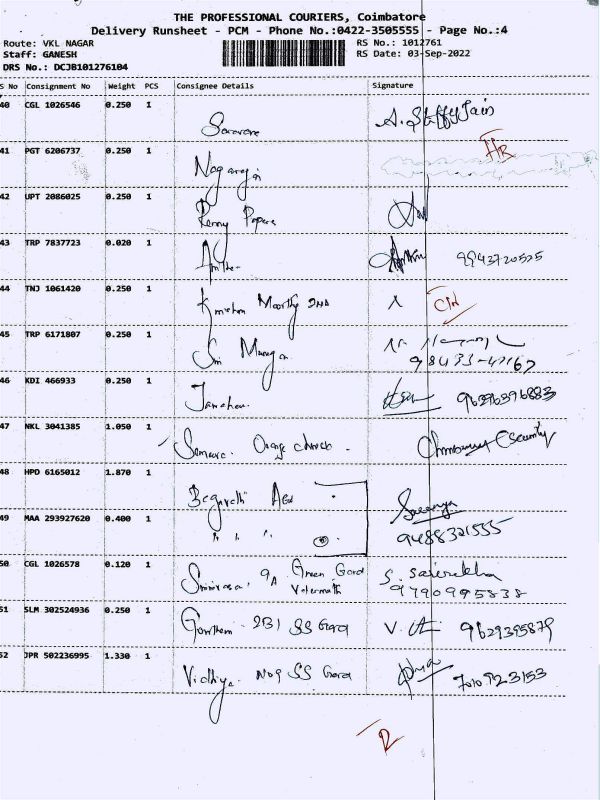 THE PROFESSIONAL COURIERS, Coimbatore
Delivery Runsheet - PCM - Phone No.:0422-3505555 - Page No.:4
Route: VKL NAGAR RS No.: 1012761
Staff: GANESH RS Date: 03-Sep-2022
DRS No.: DCJB101276104
S No Consignment No Weight PCS Consignee Details Signature
40 CGL 1026546 0.250 1
A. Steffy Jain
41 PGT 6206737 0.250 1 Nagaraj HR
42 UPT 2086025 0.250 1
43 TRP 7837723 0.020 1 9943720525
44 TNJ 1061420 0.250 1 Moorthy
45 TRP 6171807 0.250 1 Sri Murugan
98433-47167
46 KDI 466933 0.250 1 96376396883
47 NKL 3041385 1.050 1 Orange Security
48 HPD 6165012 1.870 1
49 MAA 293927620 0.400 1 9488321555
50 CGL 1026578 0.120 1 Srinivasa. 9A Green Gard S. Sairekha
9790995838
51 SLM 302524936 0.250 1 Gowtham - 2B1 SS Gard V. 9629395879
52 JPR 502236995 1.330 1 Vidhya. No9 SS Gard 7010923153